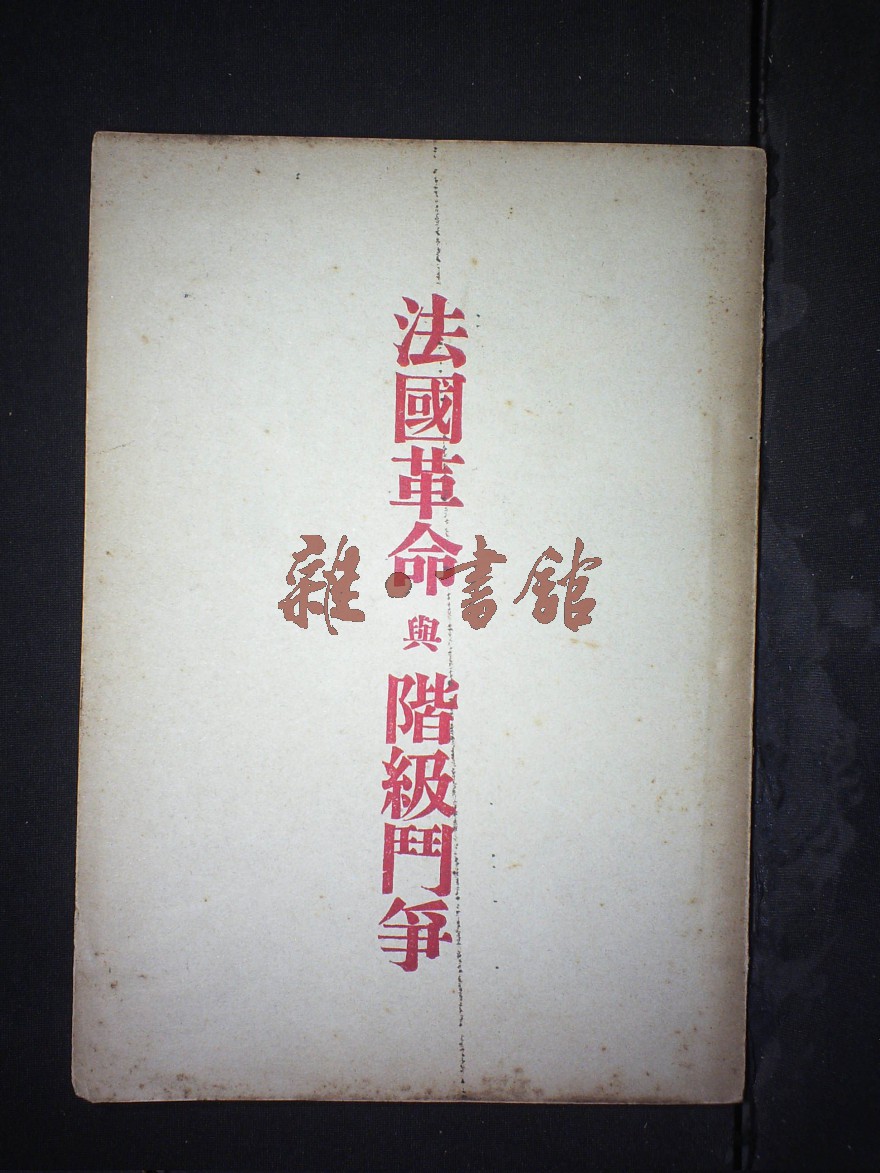 法國革命與階級鬥爭
雜·書館